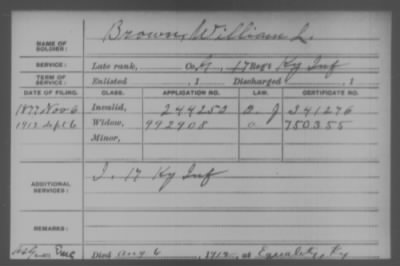 NAME OF SOLDIER: Brown, William L.
SERVICE: Late rank, Co. G, 17 Reg't Ky Inf
TERM OF SERVICE: Enlisted , 1 Discharged , 1
DATE OF FILING. CLASS. APPLICATION NO. LAW. CERTIFICATE NO.
1877 Nov 6 Invalid, 244252 G. J 341276
1912 Sept 6 Widow, 992908 a 750355
Minor,
ADDITIONAL SERVICES: I. 17 Ky Inf
REMARKS:
Died Aug 6, 1912, at Equality, Ky